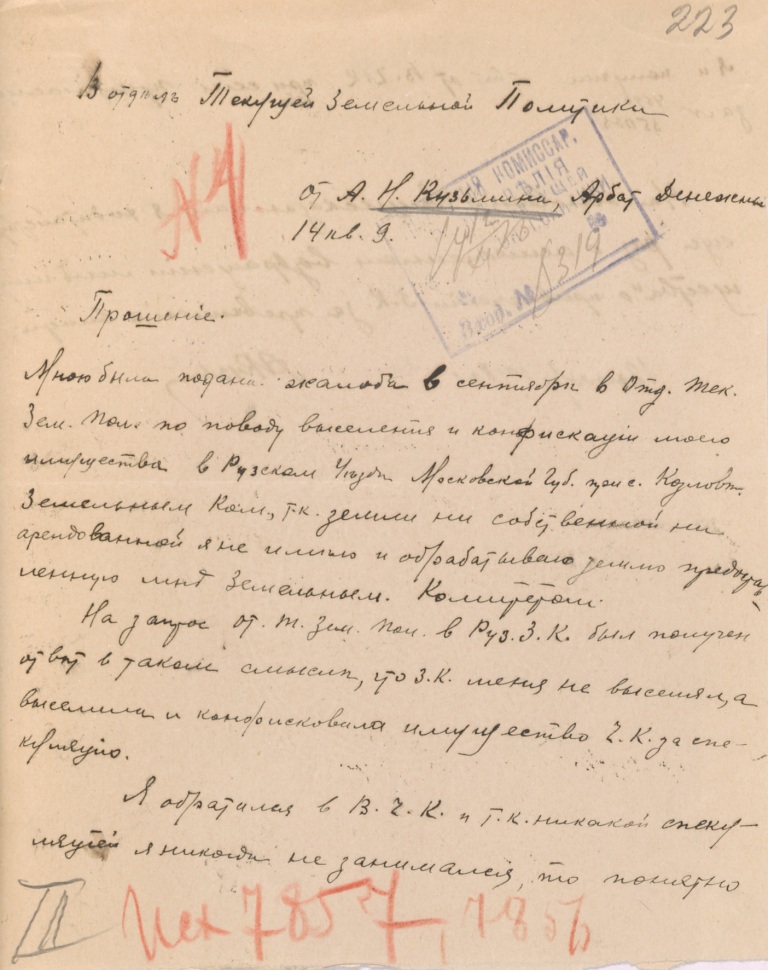 223
В отдѣлъ Текущей Земельной Политики
№4
от А. Н. Кузьмина, Арбат Денежны
14 кв. 9.
КОМИССАР.
Вход. № 1319
Прошеніе.
Мною была подана жалоба в сентябрѣ в Отд. Тек.
Зем. Пол. по поводу выселения и конфискаціи моего
имущества в Рузском Уѣзде Московской Губ. при с.
Земельным Ком., т.к. земли ни собственной ни
арендованной я не имѣю и обрабатываю землю предостав-
ленную мнѣ Земельным. Комитетом.
На запрос от. т. Зем. Пол. в Руз. З. К. был получен
отвѣт в таком смыслѣ, что З.К. меня не выселял, а
выселила и конфисковала имущество Ч.К. за спе-
куляцію.
Я обратился в В. Ч. К. и т.к. никакой спеку-
ляціей я никогда не занимался, то понятно
III Исх 7857, 7856